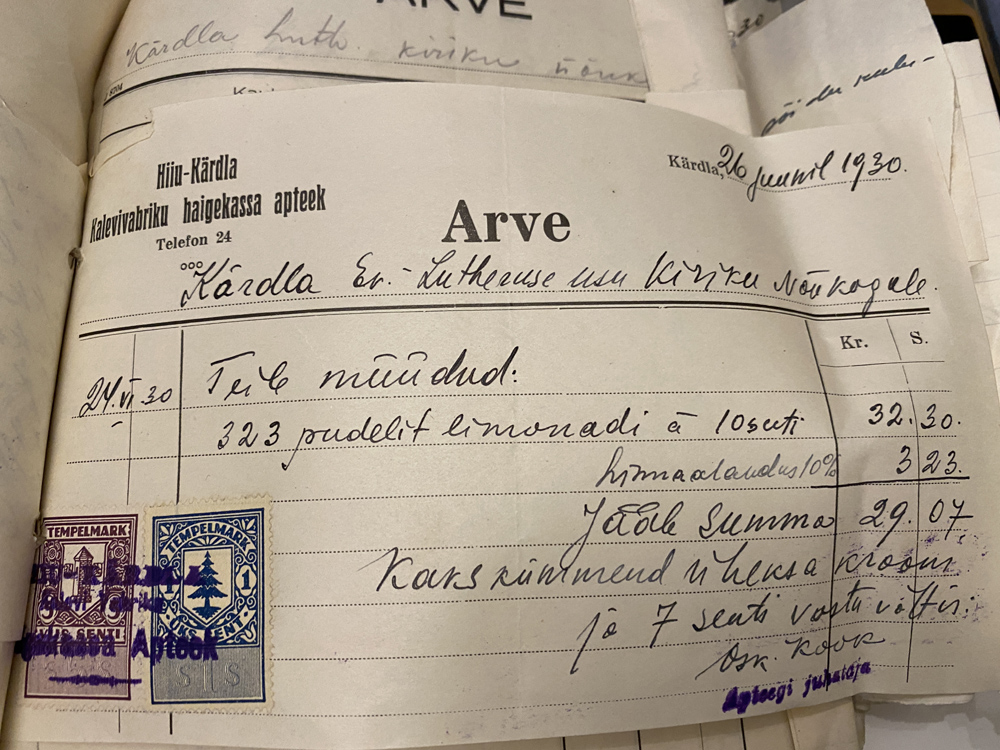 ARVE
Kärdla Luth. kiriku nõuk
Hiiu-Kärdla
Kalevivabriku haigekassa apteek
Telefon 24
Kärdla, 26 juunil 1930.
Arve
Kärdla Ev.-Lutheruse usu Kiriku Nõukogule.
Kr. S.
24.VI 30 Teile müüdud:
323 pudelit limonadi á 10 senti 32.30.
hinnaalandus 10% 3 23.
Jääb summa 29.07
Kakskümmend üheksa krooni
ja 7 senti vastu võttis:
Osk. Kook
Apteegi juhataja
TEMPELMARK
VIIS SENTI
TEMPELMARK
1
ÜKS SENT
S 1 S
Apteek